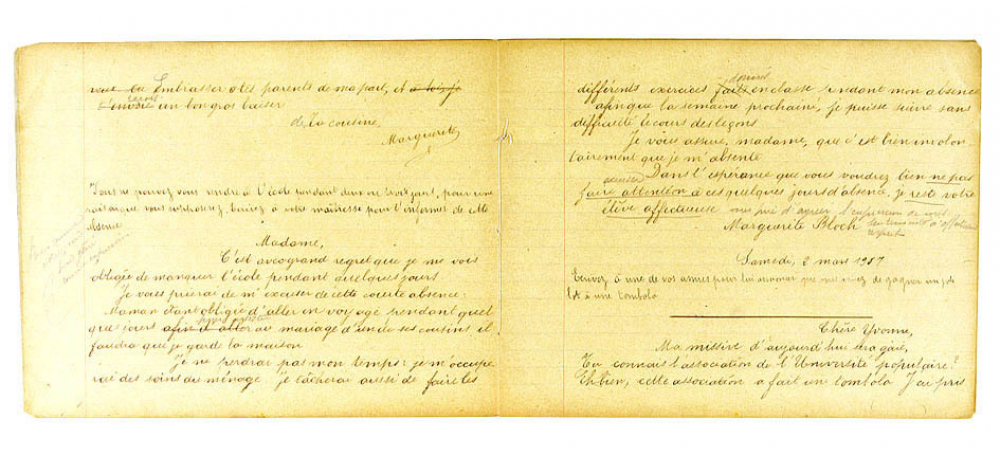 veux tu Embrasser à tes parents de ma part, et à toi je
t'envoie encore un bon gros baiser
de ta cousine
Marguerite
Vous ne pouvez vous rendre à l'école pendant deux ou trois jours, pour une
raison que vous supposerez, écrivez à votre maîtresse pour l'informer de cette
absence.
Madame,
C'est avec grand regret que je me vois
obligée de manquer l'école pendant quelques jours.
Je vous prierai de m'excuser de cette courte absence:
Maman étant obligée d'aller en voyage pendant quel
ques jours afin d'aller au mariage d'un de ses cousins il
faudra que je garde la maison
Je ne perdrai pas mon temps: je m'occupe
rai des soins du ménage je tâcherai aussi de faire les
différents exercices faits donnés en classe pendant mon absence
afin que la semaine prochaine, je puisse suivre sans
difficulté le cours des leçons
Je vous assure, madame, que c'est bien involon
tairement que je m'absente
Dans l'espérance que vous voudrez bien ne pas
faire attention à ces quelques jours d'absence, je reste votre
élève affectueuse vous prie d'agréer l'expression de mes
sentiments
Marguerite Bloch
Samedi, 2 mars
Ecrivez à une de vos amies pour lui annoncer que vous venez de gagner un joli
lot à une tombola
Chère Yvonne,
Ma missive d'aujourd'hui sera gaie,
Tu connais l'association de l'Université populaire?
Eh bien, cette association a fait un tombola J'ai pris